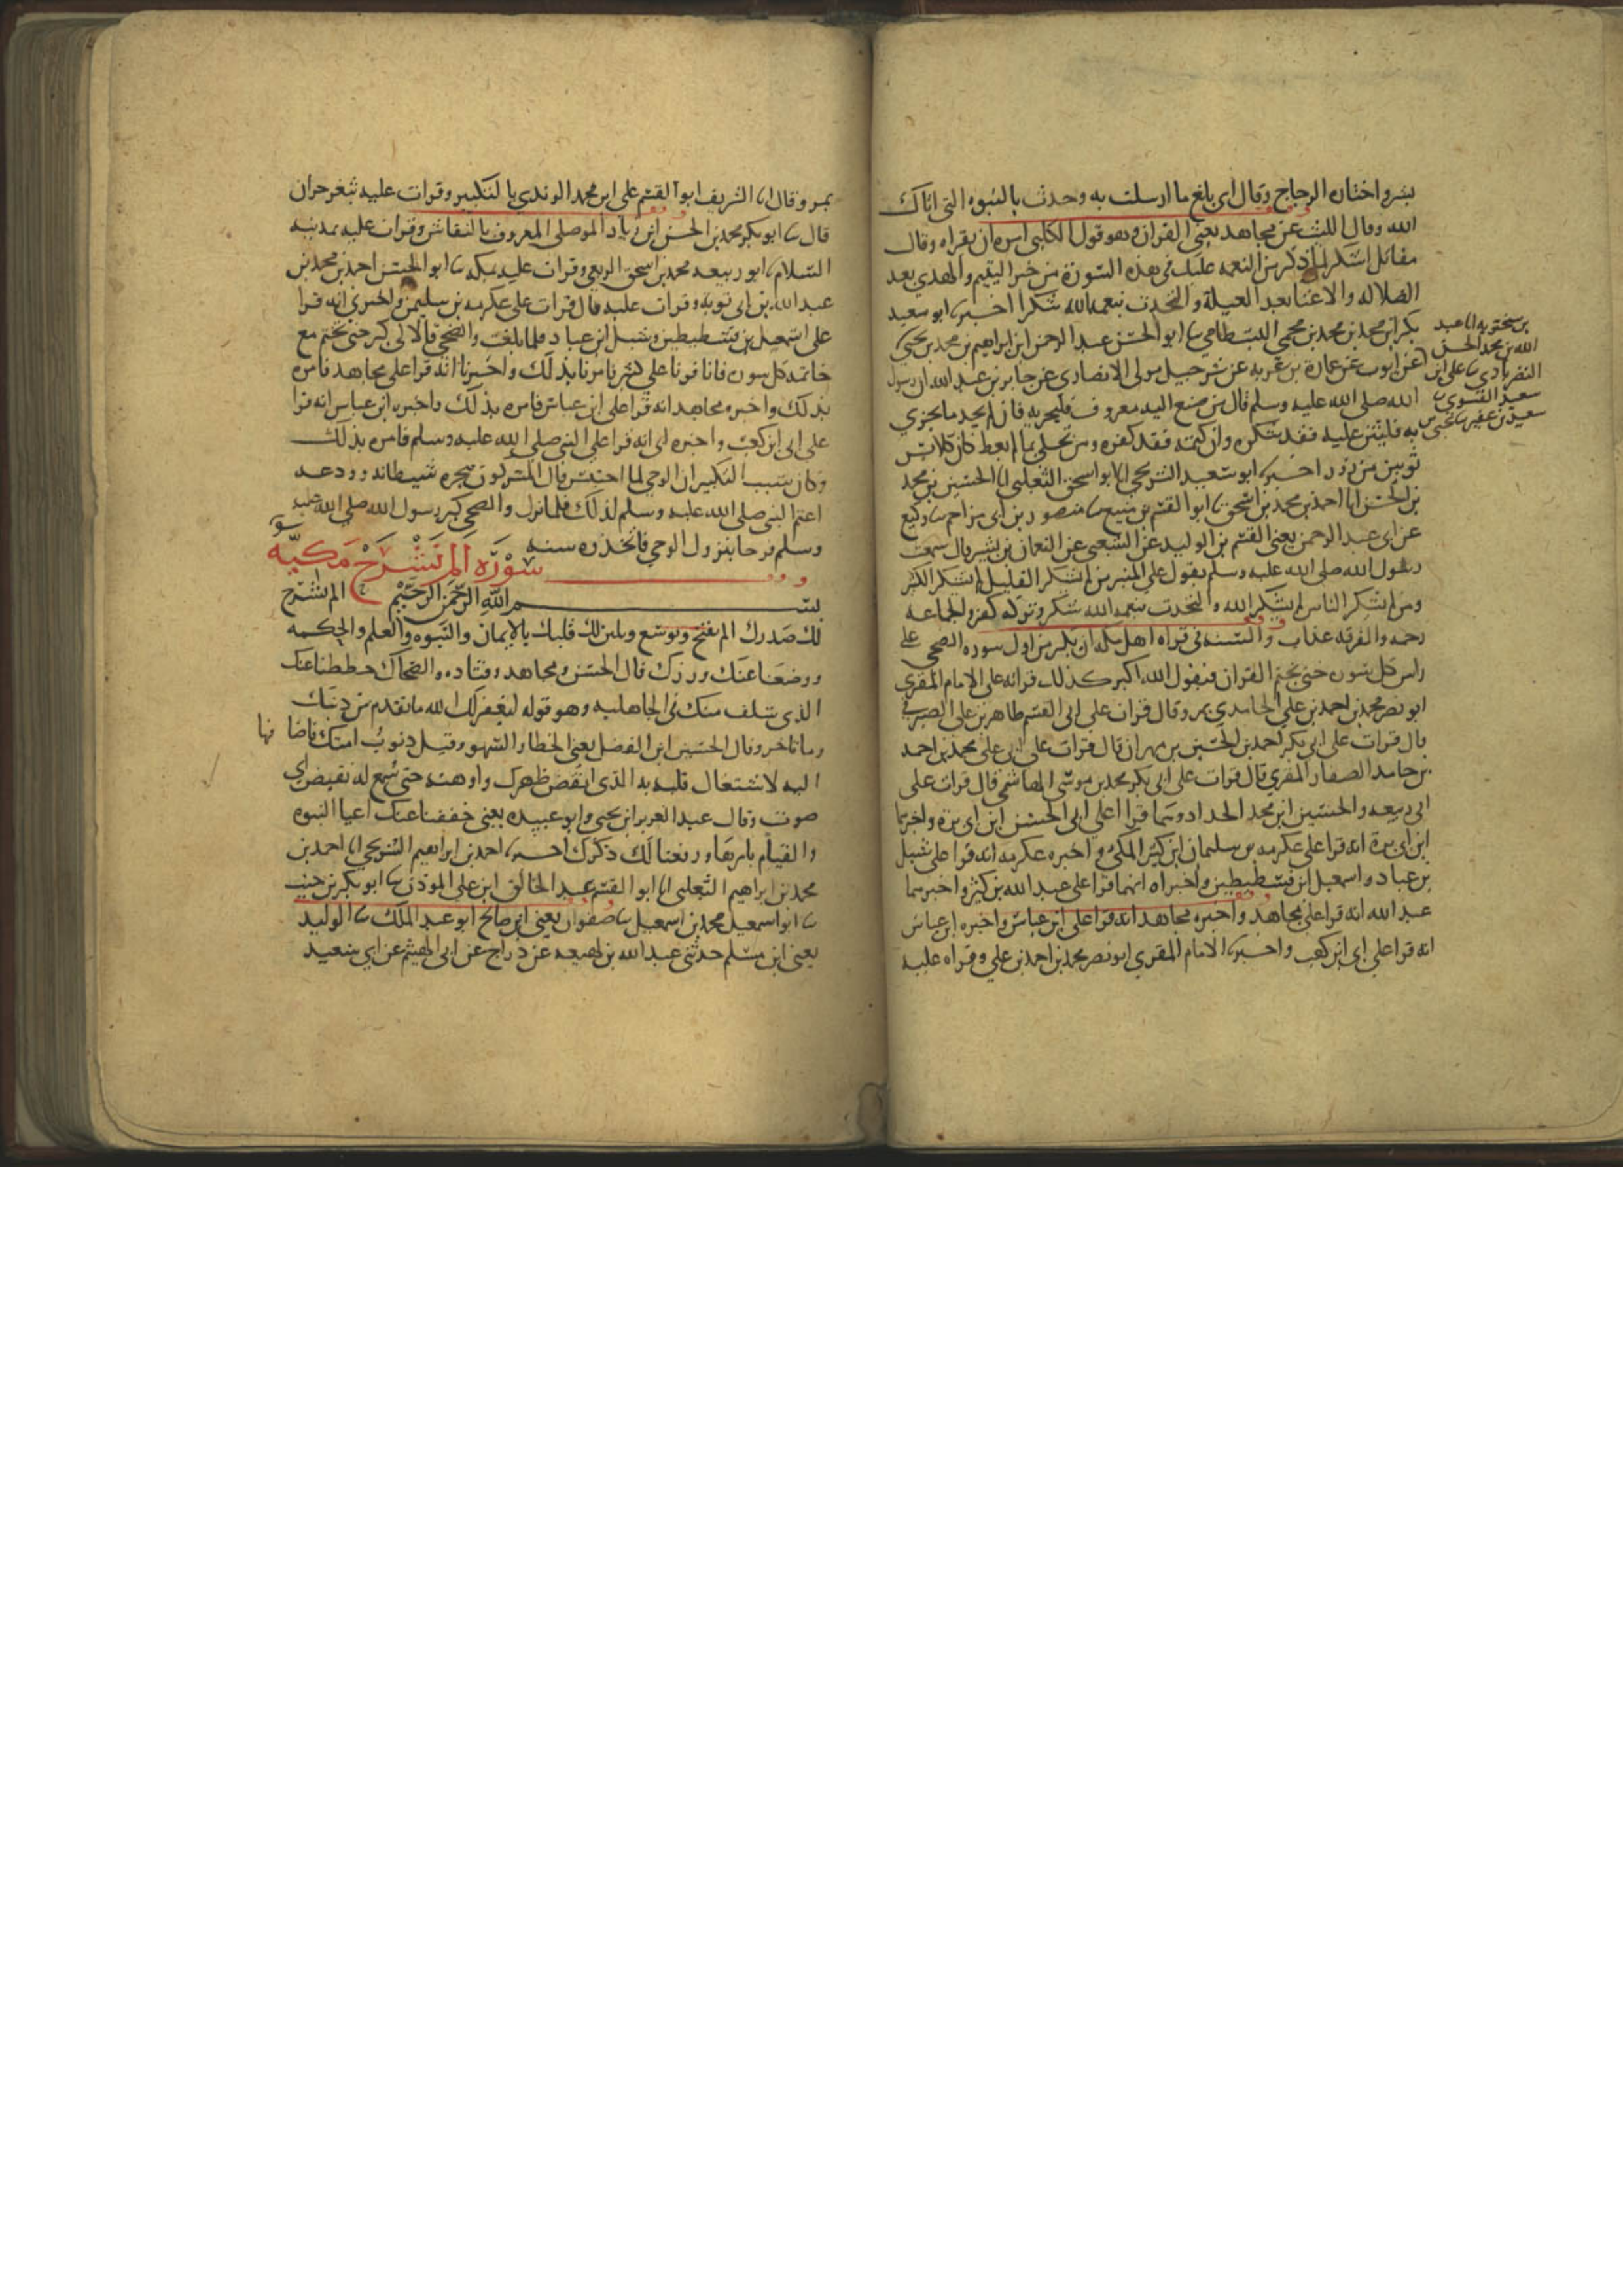 بشر واختاره الزجاج وقال اي بلغ ما ارسلت به وحدث بالنبوه التي اتاك
الله وقال الليث عن مجاهد يعني القران وهو قول الكلبي امره ان يقراه وقال
مقاتل اشكر لما ذكر من النعمه عليك في هذه السورة من جبر اليتيم والهدي بعد
الضلاله والاغنا بعد العيلة والتحدث بنعمه الله شكر اخبرنا ابو سعيد
بكر ابن محمد بن محمد بن محمي البسطامي ابو الحسن عبد الرحمن ابن ابراهيم بن محمد بن يحيى
بن سختويه انا عبد
الله بن محمد بن الحسن
النصرابادي علي ابن
سعيد النسوي
سعيد بن عفير يحيى
عن ايوب عن عمارة بن غزيه عن شرحبيل مولى الانصاري عن جابر بن عبد الله ان رسول
الله صلى الله عليه وسلم قال من صنع اليه معروف فليجز به فان لم يجد ما يجزي
به فليثن عليه فقد شكره وان كتمه فقد كفره ومن تحلى بما لم يعط كان كلابس
ثوبين من زور اخبرنا ابو سعيد الشريحي انا ابو اسحق الثعلبي انا الحسين بن محمد
بن الحسن انا احمد بن محمد بن اسحق ابو القسم بن منيع منصور بن ابي مزاحم وكيع
عن ابي عبد الرحمن يعني القسم بن الوليد عن الشعبي عن النعمان بن بشير قال سمعت
رسول الله صلى الله عليه وسلم يقول على المنبر من لم يشكر القليل لم يشكر الكثير
ومن لم يشكر الناس لم يشكر الله والتحدث بنعمه الله شكر وتركه كفر والجماعه
رحمه والفرقه عذاب والسنه في قراه اهل مكه ان يكبر من اول سوره الضحى على
راس كل سورة حتى يختم القران فيقول الله اكبر كذلك قراته على الامام المقري
ابو نصر محمد بن احمد بن علي الحامدي بمرو وقال قرات على ابي القسم طاهر بن علي الصيرفي
قال قرات على ابي بكر احمد بن الحسين بن مهران قال قرات على ابي علي محمد بن احمد
بن حامد الصفار المقري قال قرات على ابي بكر محمد بن موسى الهاشمي قال قرات على
ابي ربيعه والحسين ابن محمد الحداد وهما قرا على ابي الحسن ابن ابي بزة واخبرهما
ابن ابي بزة انه قرا على عكرمه بن سليمان ابن كثير المكي واخبره عكرمه انه قرا على شبل
بن عباد واسمعيل ابن قسطنطين واخبراه انهما قرا على عبد الله بن كثير واخبرهما
عبد الله انه قرا على مجاهد واخبره مجاهد انه قرا على ابن عباس واخبره ابن عباس
انه قرا على ابي ابن كعب واخبرنا الامام المقري ابو نصر محمد بن احمد بن علي وقراه عليه
بمرو وقال انا الشريف ابو القسم علي ابن محمد الزيدي بالتكبير وقرات عليه بثغر حران
قال ابو بكر محمد بن الحسن ابن زياد الموصلي المعروف بالنقاش وقرات عليه بمدينه
السلام ابو ربيعه محمد بن اسحق الربعي وقرات عليه بمكه ابو الحسن احمد بن محمد بن
عبد الله بن ابي بزه وقرات عليه قال قرات على عكرمه بن سليمن واخبرني انه قرا
على اسمعيل بن قسطنطين وشبل ابن عباد فلما بلغت والضحى قالا لي كبر حتى تختم مع
خاتمه كل سورة فانا قرانا على ابن كثير فامرنا بذلك واخبرنا انه قرا على مجاهد فامره
بذلك واخبره مجاهد انه قرا على ابن عباس فامره بذلك واخبره ابن عباس انه قرا
على ابي ابن كعب واخبره ابي انه قرا على النبي صلى الله عليه وسلم فامره بذلك
وكان سبب التكبير ان الوحي لما احتبس قال المشركون هجره شيطانه وودعه
اغتم النبي صلى الله عليه وسلم لذلك فلما نزل والضحى كبر رسول الله صلى الله عليه
وسلم فرحا بنزول الوحي فاتخذوه سنه
سورة الم نشرح مكيه
بسم الله الرحمن الرحيم الم نشرح
لك صدرك الم نفتح ونوسع ونلين لك قلبك بالايمان والنبوه والعلم والحكمه
ووضعنا عنك وزرك قال الحسن ومجاهد وقتاده والضحاك حططنا عنك
الذي سلف منك في الجاهليه وهو قوله ليغفر لك الله ما تقدم من ذنبك
وما تاخر وقال الحسين ابن الفضل يعني الخطا والسهو وقيل ذنوب امتك فاضافها
اليه لاشتغال قلبه به الذي انقض ظهرك واوهنه حتى سمع له نقيض اي
صوت وقال عبد العزيز ابن يحيى وابو عبيده يعني خففنا عنك اعبا النبوه
والقيام بامرها ورفعنا لك ذكرك اخبرنا احمد بن ابراهيم الشريحي انا احمد بن
محمد بن ابراهيم الثعلبي انا ابو القسم عبد الخالق ابن علي الموذن ابو بكر بن حبيب
ابو اسمعيل محمد بن اسمعيل صفوان يعني ابن صالح ابو عبد الملك الوليد
يعني ابن مسلم حدثني عبد الله بن لهيعه عن دراج عن ابي الهيثم عن ابي سعيد